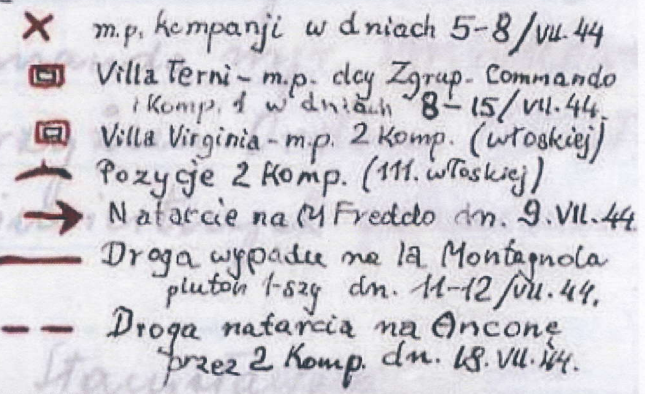 m.p. kompanji w dniach 5-8/VII.44
Villa Terni - m.p. dcy Zgrup. Commando
i Komp. 1 w dniach 8-15/VII.44.
Villa Virginia - m.p. 2 Komp. (włoskiej)
Pozycje 2 Komp. (111. włoskiej)
Natarcie na Freddo dn. 9.VII.44
Droga wypadu na la Montagnola
pluton 1-szy dn. 11-12/VII.44.
Droga natarcia na Anconę
przez 2 Komp. dn. 18.VII.44.